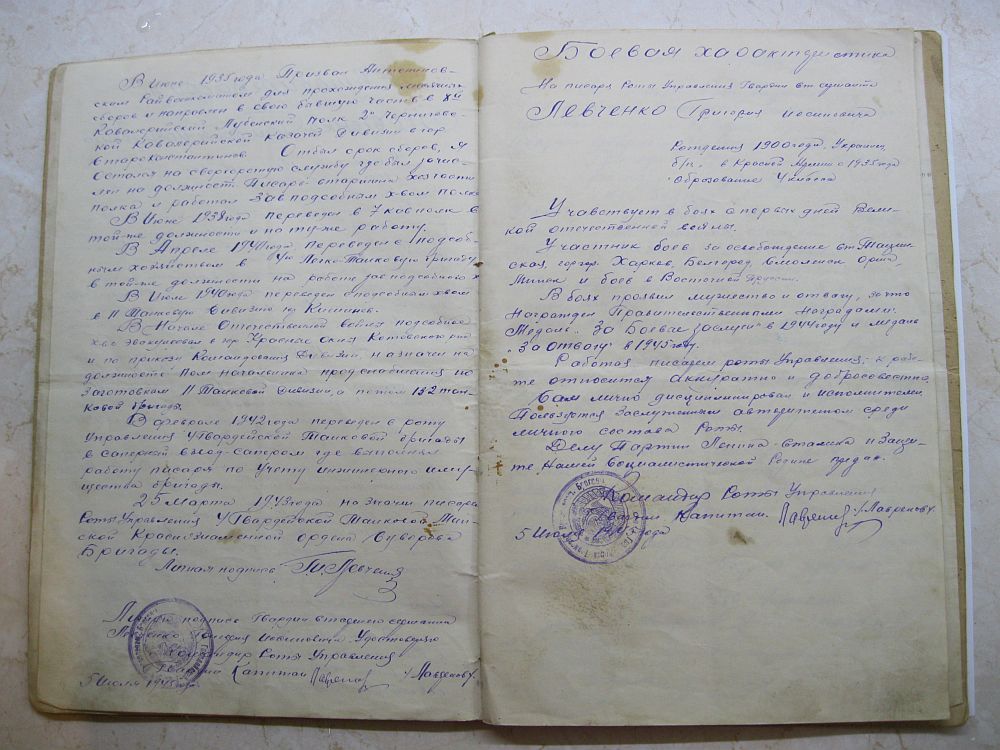 В Июне 1935 года Призван Антонинов-
ским Райвоенкоматом для прохождения
сборов и направлен в свою бывшую часть в
Кавалерийский полк 2й Чернигов-
кой Кавалерийской Казачей Дивизии в гор
Старо Константинов. Отбыл срок сборов, я
Остался на сверхсрочную службу где был зачис-
лен на должность Писаря старшина хозчасти
полка и работал Зав подсобным х-вом полка
В Июне 1938 года переведен в 7 кав полк в
той-же должности и на ту же работу.
В Апреле 1940 года Переведен с подсоб-
ным хозяйством в Легко-Танковую бригаду
в той-же должности на работу зав подсобного х-
В Июле 1940 года переведен с подсобным х-вом
в 11 Танковую Дивизию гор Кишинев.
В Начале Отечественной войны подсобное
х-во эвакуировал в гор Красные Окна Котовского
и по приказу Командования Дивизии назначен на
должность Пом начальника продснабжения по
Заготовкам 11 Танковой Дивизии, а потом 132 тан-
ковой бригады.
В феврале 1942 года переведен в роту
Управления 4 Гвардейской Танковой бригады
в саперный взвод-сапером где выполнял
работу писаря по Учету инжинерного иму-
щества бригады.
25 Марта 1943 года назначен писарем
Роты Управления 4 Гвардейской Танковой Мин-
ской Краснознаменной ордена Суворова
Бригады.
Личная подпись Г. Левченко
подпись Гвардии старшего сержанта
Левченко Григория иосиповича Удостоверяю
Командир Роты Управления
Гвардии Капитан /Лавренов/
5 Июля 1945 года
Боевая характеристика
На писаря Роты Управления Гвардии ст сержанта
ЛЕВЧЕНКО Григория иосиповича
Рождения 1900 года, Украинец
б/п. в Красной Армии с 1935 года
образование 4 класса
Учавствует в боях с первых дней Вели-
кой отечественной войны.
Участник боев за освобождение ст Тацин-
ская, гор гор. Харков, Белгород, Смоленск Орша,
Минск и боев в Восточной Пруссии.
В боях проявил мужество и отвагу, за что
Награжден Правительственными наградами:
Медаль "За Боевые заслуги" в 1944 году и медаль
"За Отвагу" в 1945 году.
Работая писарем роты Управления, к рабо-
те относится аккуратно и добросовестно.
Сам лично дисциплинирован и исполнителен
Пользуется заслуженным авторитетом среди
личного состава Роты.
Делу Партии Ленина-Сталина и Защи-
те Нашей Социалистической Родине предан.
Командир Роты Управления
Гвардии Капитан /Лавренов/
5 Июля 1945 года